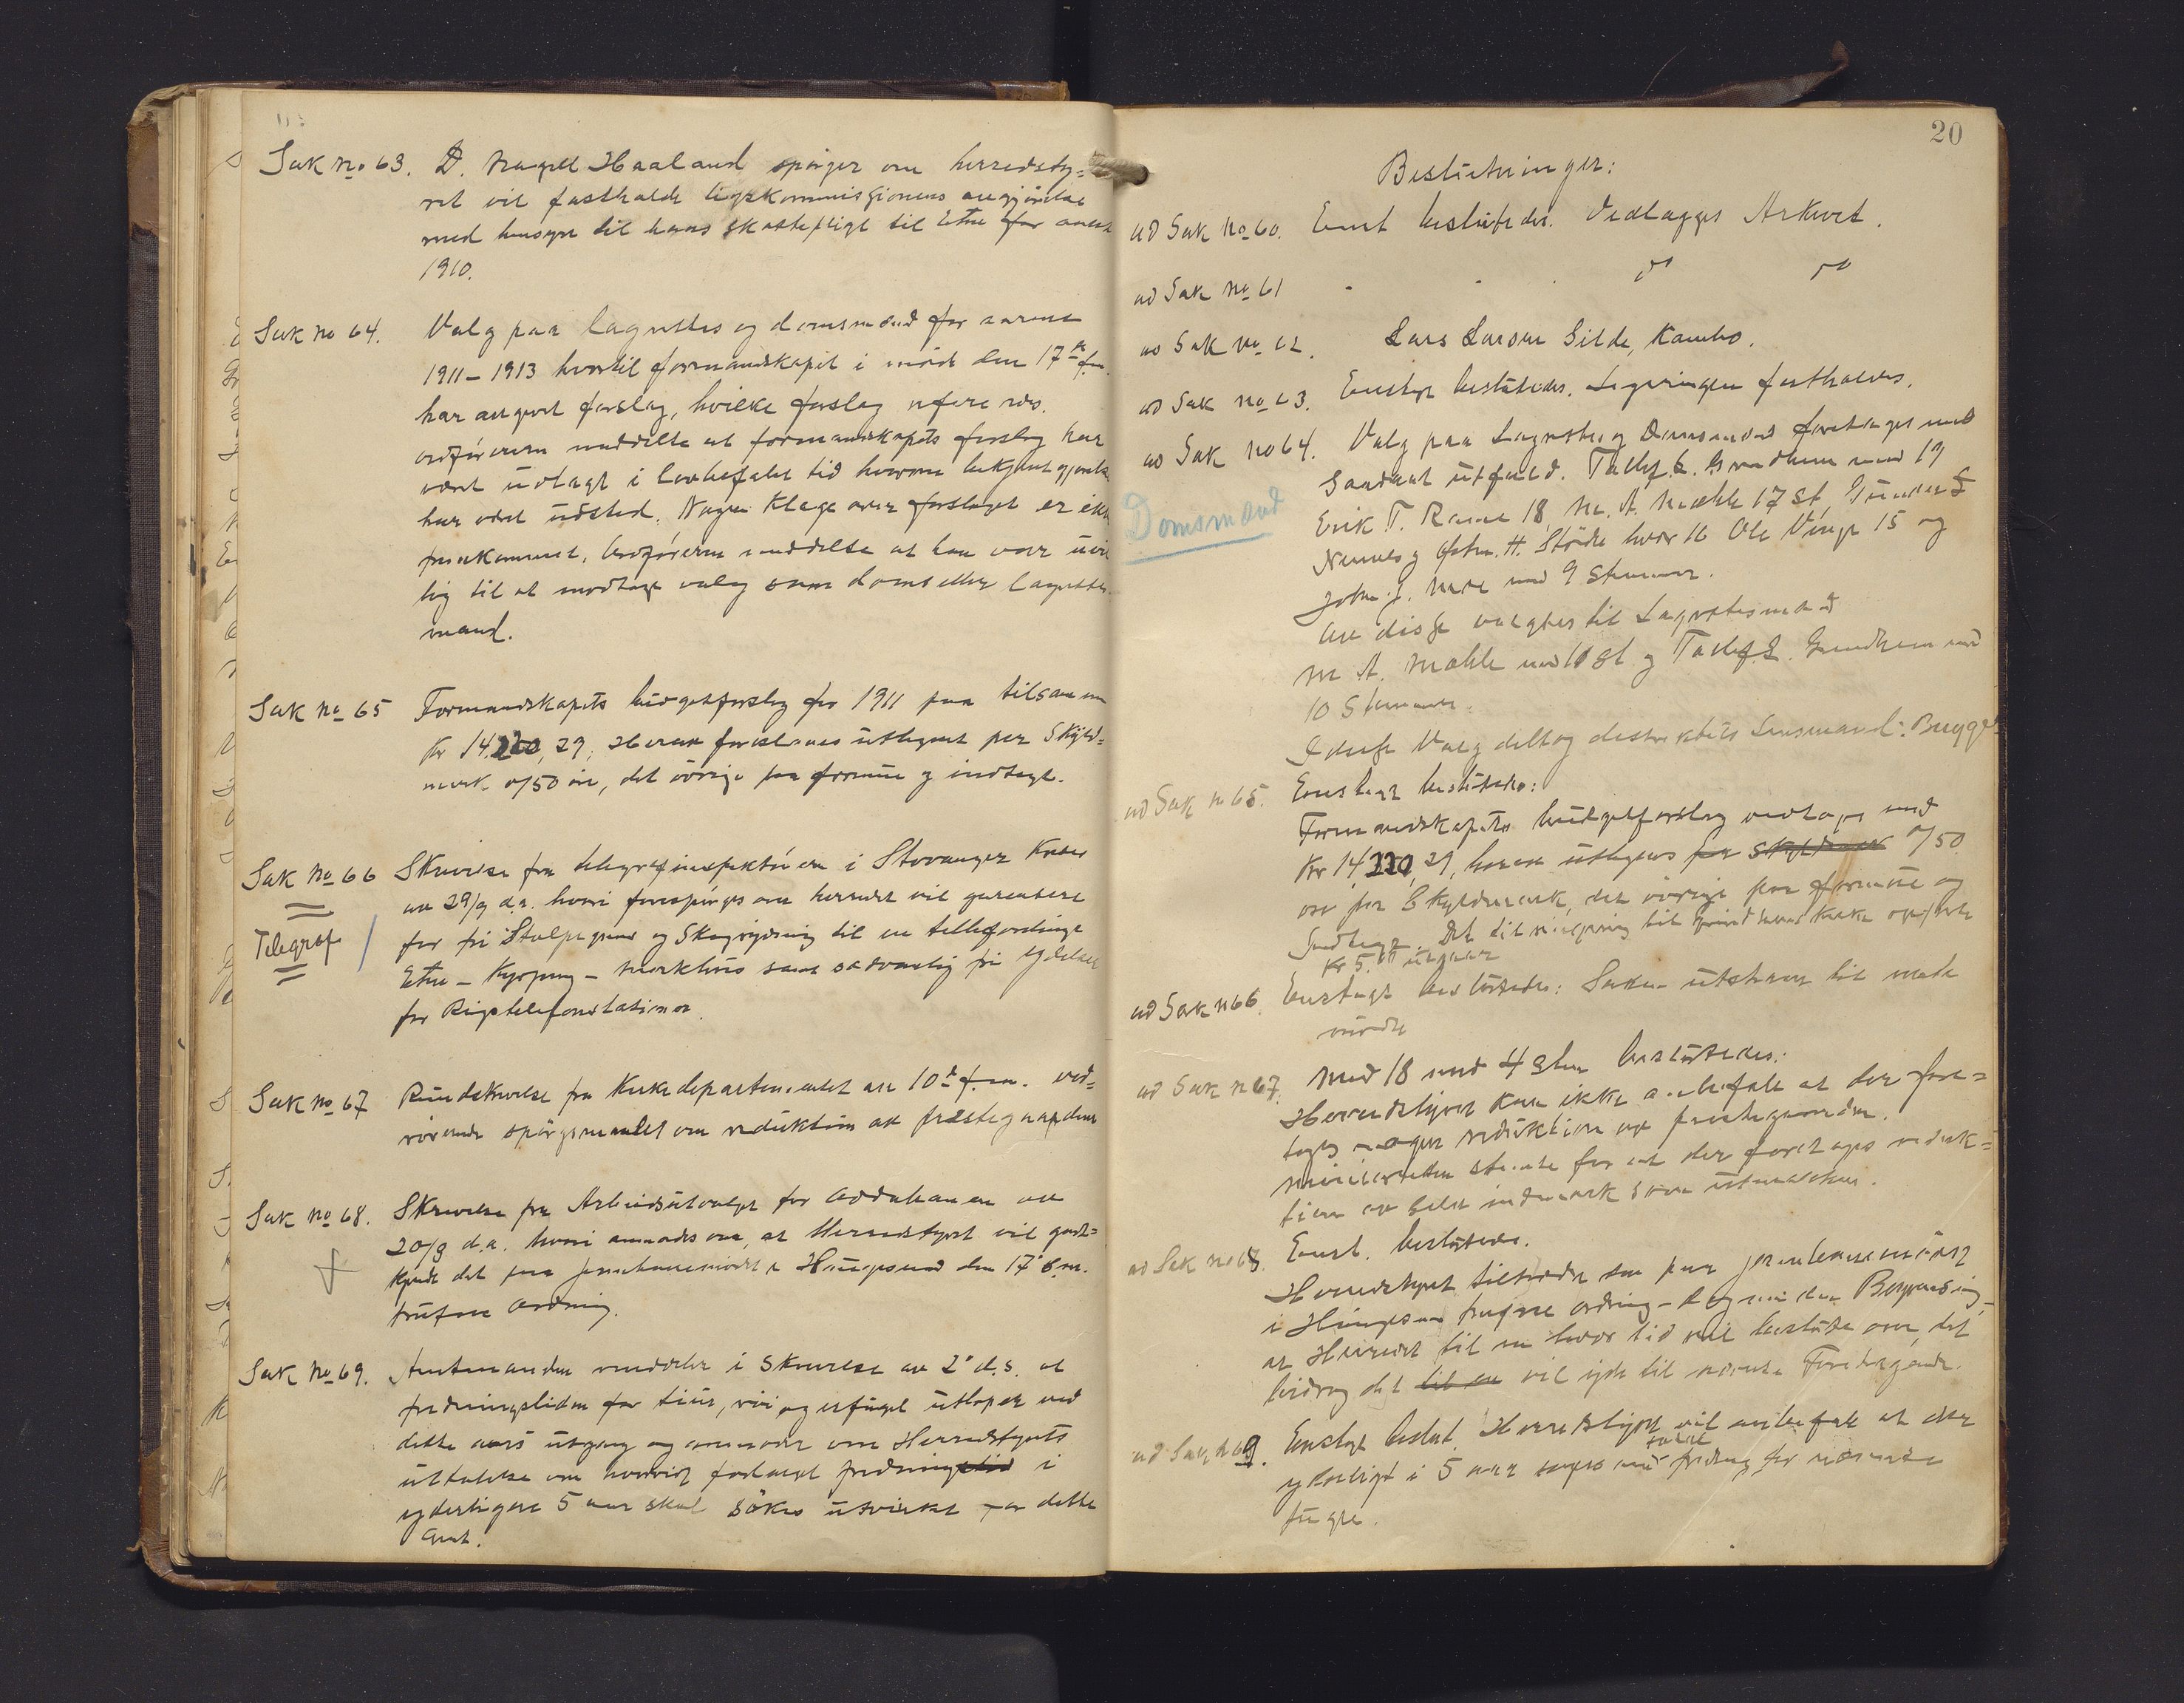 Sak no 63. D. Nagell Haaland spörger om herredsty=
ret vil fastholde ligskommissionens avgjörelse
med hensyn til hans skattepligt til Etne for aaret
1910.
Sak no 64. Valg paa lagrettes og domsmænd for aarene
1911-1913 hvortil formandskapet i möde den 17de f.m.
har avgivet forslag, hvilke forslag refereredes.
ordföreren meddelte at formandskapets forslag har
været utlagt i lovbefalet tid hvorom bekjentgjörelse
har været utsted. Nogen klage over forslaget er ikke
fremkommet. Ordföreren meddelte at han var uvil
lig til at modtage valg som doms eller lagrettes-
mand.
Sak no 65 Formandskapets budgetforslag for 1911 paa tilsammen
Kr 14.220,29, Herav foreslaaes utlignet per Skyld=
mark 0/50 öre, det övrige paa formue og indtægt.
Sak No 66 Skrivelse fra telegrafinspektören i Stavanger
av 29/9 d.a. hvori forespörges om herredet vil garantere
Telegraf for fri Stolpegrund og Skogrydning til en telefonlinje
Etne - Kyrping - samt sedvanlig fri ydelser
for Rigstelefonstationer.
Sak no 67 Rundskrivelse fra Kirkedepartementet av 10de f.m. ved=
rörende spörgsmaalet om reduktion av prestegaardene
Sak no 68. Skrivelse fra Arbeidsutvalget for Oddabanen av
20/9 d.a. hvori anmodes om, at Herredstyret vil godk=
kjende det paa jernbanemödet i Haugesund den 17 s.m.
trufne Ordning.
Sak no 69. Amtmanden meddeler i Skrivelse av 2' d.s. at
fredningstiden for tiur, röi og urfugl utlöper ved
dette aars utgang og anmoder om Herredstyrets
uttalelse om hvorvidt forlænget fredningstid i
yderligere 5 aar skal sökes utvirket for dette
Amt.
20
Beslutninger:
ad Sak no 60. Enst besluttedes. Vedlægges Arkivet.
ad Sak no 61 . . . do do
ad Sak no 62. Lars Larsen Silde, Kambo.
ad Sak no 63. Enstem besluttedes. Ligningen fastholdes.
ad Sak no 64. Valg paa Lagrettes og Domsmænd foretages med
Domsmænd
saadant utfald. Tollef L. Grindheim med 19
Erik T. Ramne 18, M. A. Mæhle 17 st,
Nernes og Östen H. Stödle hver 16 Ole Vinje 15 og
John J. med 9 Stemmer.
Av disse valgtes til Lagrettesmænd
M A. Mæhle med 11 st og Tollef L. Grindheim med
10 Stemmer.
I dette Valg deltog distriktets Lensmand: Brygge
ad Sak no 65. Enstemt besluttedes:
Formandskapets budgetforslag vedtages med
Kr 14220,29, herav utlignes per skyldmark 0/50
öre per Skyldmark, det övrige paa formue og
Indtægt. Det til til Grindheims Kirke opförte
Kr 5.00 utgaar
ad Sak n 66. Enstemt besluttedes: Saken utstaar til næste
möde
ad Sak n 67. Med 18 mod 4 Stem besluttedes:
Herredstyret kan ikke anbefale at der fore=
tages nogen reduktion av prestegaarden.
Minoriteten stemte for at der foretages reduk=
tion av både indmark som utmarken.
ad Sak no 68. Enst. besluttedes.
Herredstyret tiltræder den paa jernbanemödet
i Haugesund trufne ordning - dog
at Herredet til en hver tid vil beslutte om, det
bidrag det til en vil yde til nævnte Foretagende.
ad Sag n 69. Enstemt beslut. Herredstyret vil anbefale at der
yderligere i 5 aar total fredning for nævnte
fugle.